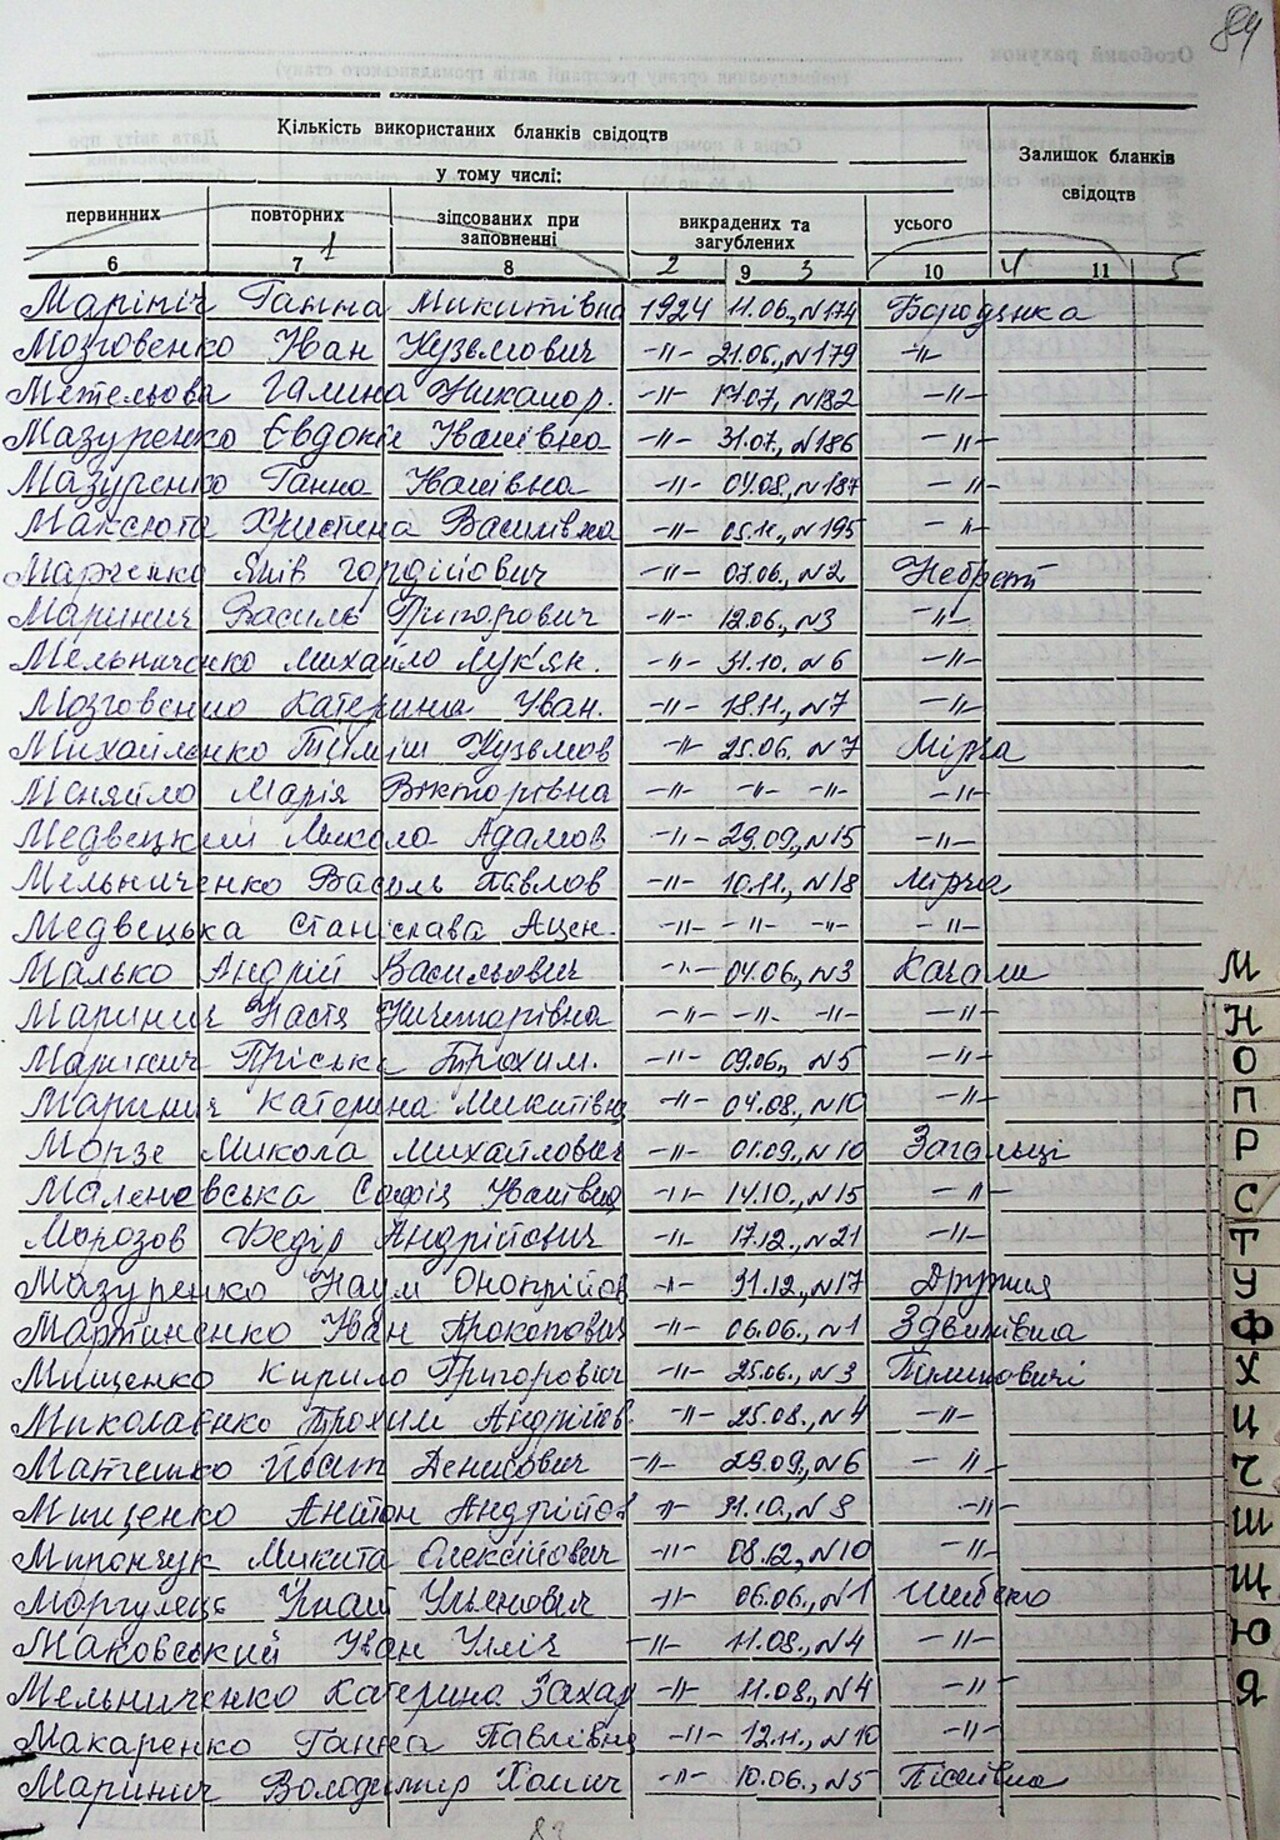 84
Кількість використаних бланків свідоцтв
Залишок бланків свідоцтв
у тому числі:
первинних повторних зіпсованих при заповненні викрадених та загублених усього
1 2 3 4 5
6 7 8 9 10 11
Марініч Ганна Микитівна 1924 11.06., N174 Бородянка
Мозговенко Іван Кузьмович -"- 21.06., N179 -"-
Метельова Галина Никанор. -"- 17.07, N182 -"-
Мазуренко Євдокія Іванівна -"- 31.07, N186 -"-
Мазуренко Ганна Іванівна -"- 04.08., N187 -"-
Максюта Христина Василівна -"- 05.11., N195 -"-
Марченко Яків Гордійович -"- 07.06., N2 Небрат
Маринич Василь Григорович -"- 12.06., N3 -"-
Мельниченко Михайло Лук'ян. -"- 31.10. N6 -"-
Мозговенко Катерина Іван. -"- 18.11., N7 -"-
Михайленко Тиміш Кузьмов -"- 25.06. N7 Мірча
Меняйло Марія Вікторівна -"- -"- -"- -"-
Медвецкий Микола Адамов -"- 29.09., N15 -"-
Мельниченко Василь Павлов -"- 10.11., N18 Мірча
Медвецька Станіслава -"- -"- -"- -"-
Малько Андрій Васильович -"- 04.06., N3 Качали
Маринич Настя Ничипорівна -"- -"- -"- -"-
Маринич Пріська Трохим. -"- 09.06., N5 -"-
Маринич Катерина Микитівна -"- 04.08., N10 -"-
Морзе Микола Михайлович -"- 01.09., N10 Загальці
Маленовська Софія Іванівна -"- 14.10., N15 -"-
Морозов Федір Андрійович -"- 17.12., N21 -"-
Мазуренко Наум Онопрійов -"- 31.12., N17 Дружня
Мартиненко Іван Прокопович -"- 06.06., N1 Здвижівка
Мищенко Кирило Григорович -"- 25.06., N3 Пилиповичі
Миколаєнко Трохим Андрійов. -"- 25.08., N4 -"-
Матешко Йосип Денисович -"- 29.09., N6 -"-
Мищенко Антон Андрійов -"- 31.10., N8 -"-
Мирончук Микита Олексійович -"- 08.12., N10 -"-
Моргулець Ігнат -"- 06.06., N1 Шибено
Маковський Іван Ілліч -"- 11.08., N4 -"-
Мельниченко Катерина Захар -"- 11.08., N4 -"-
Макаренко Ганна Павлівна -"- 12.11., N10 -"-
Маринич Володимир Хомич -"- 10.06., N5 Пісківка
М
Н
О
П
Р
С
Т
У
Ф
Х
Ц
Ч
Ш
Щ
Ю
Я